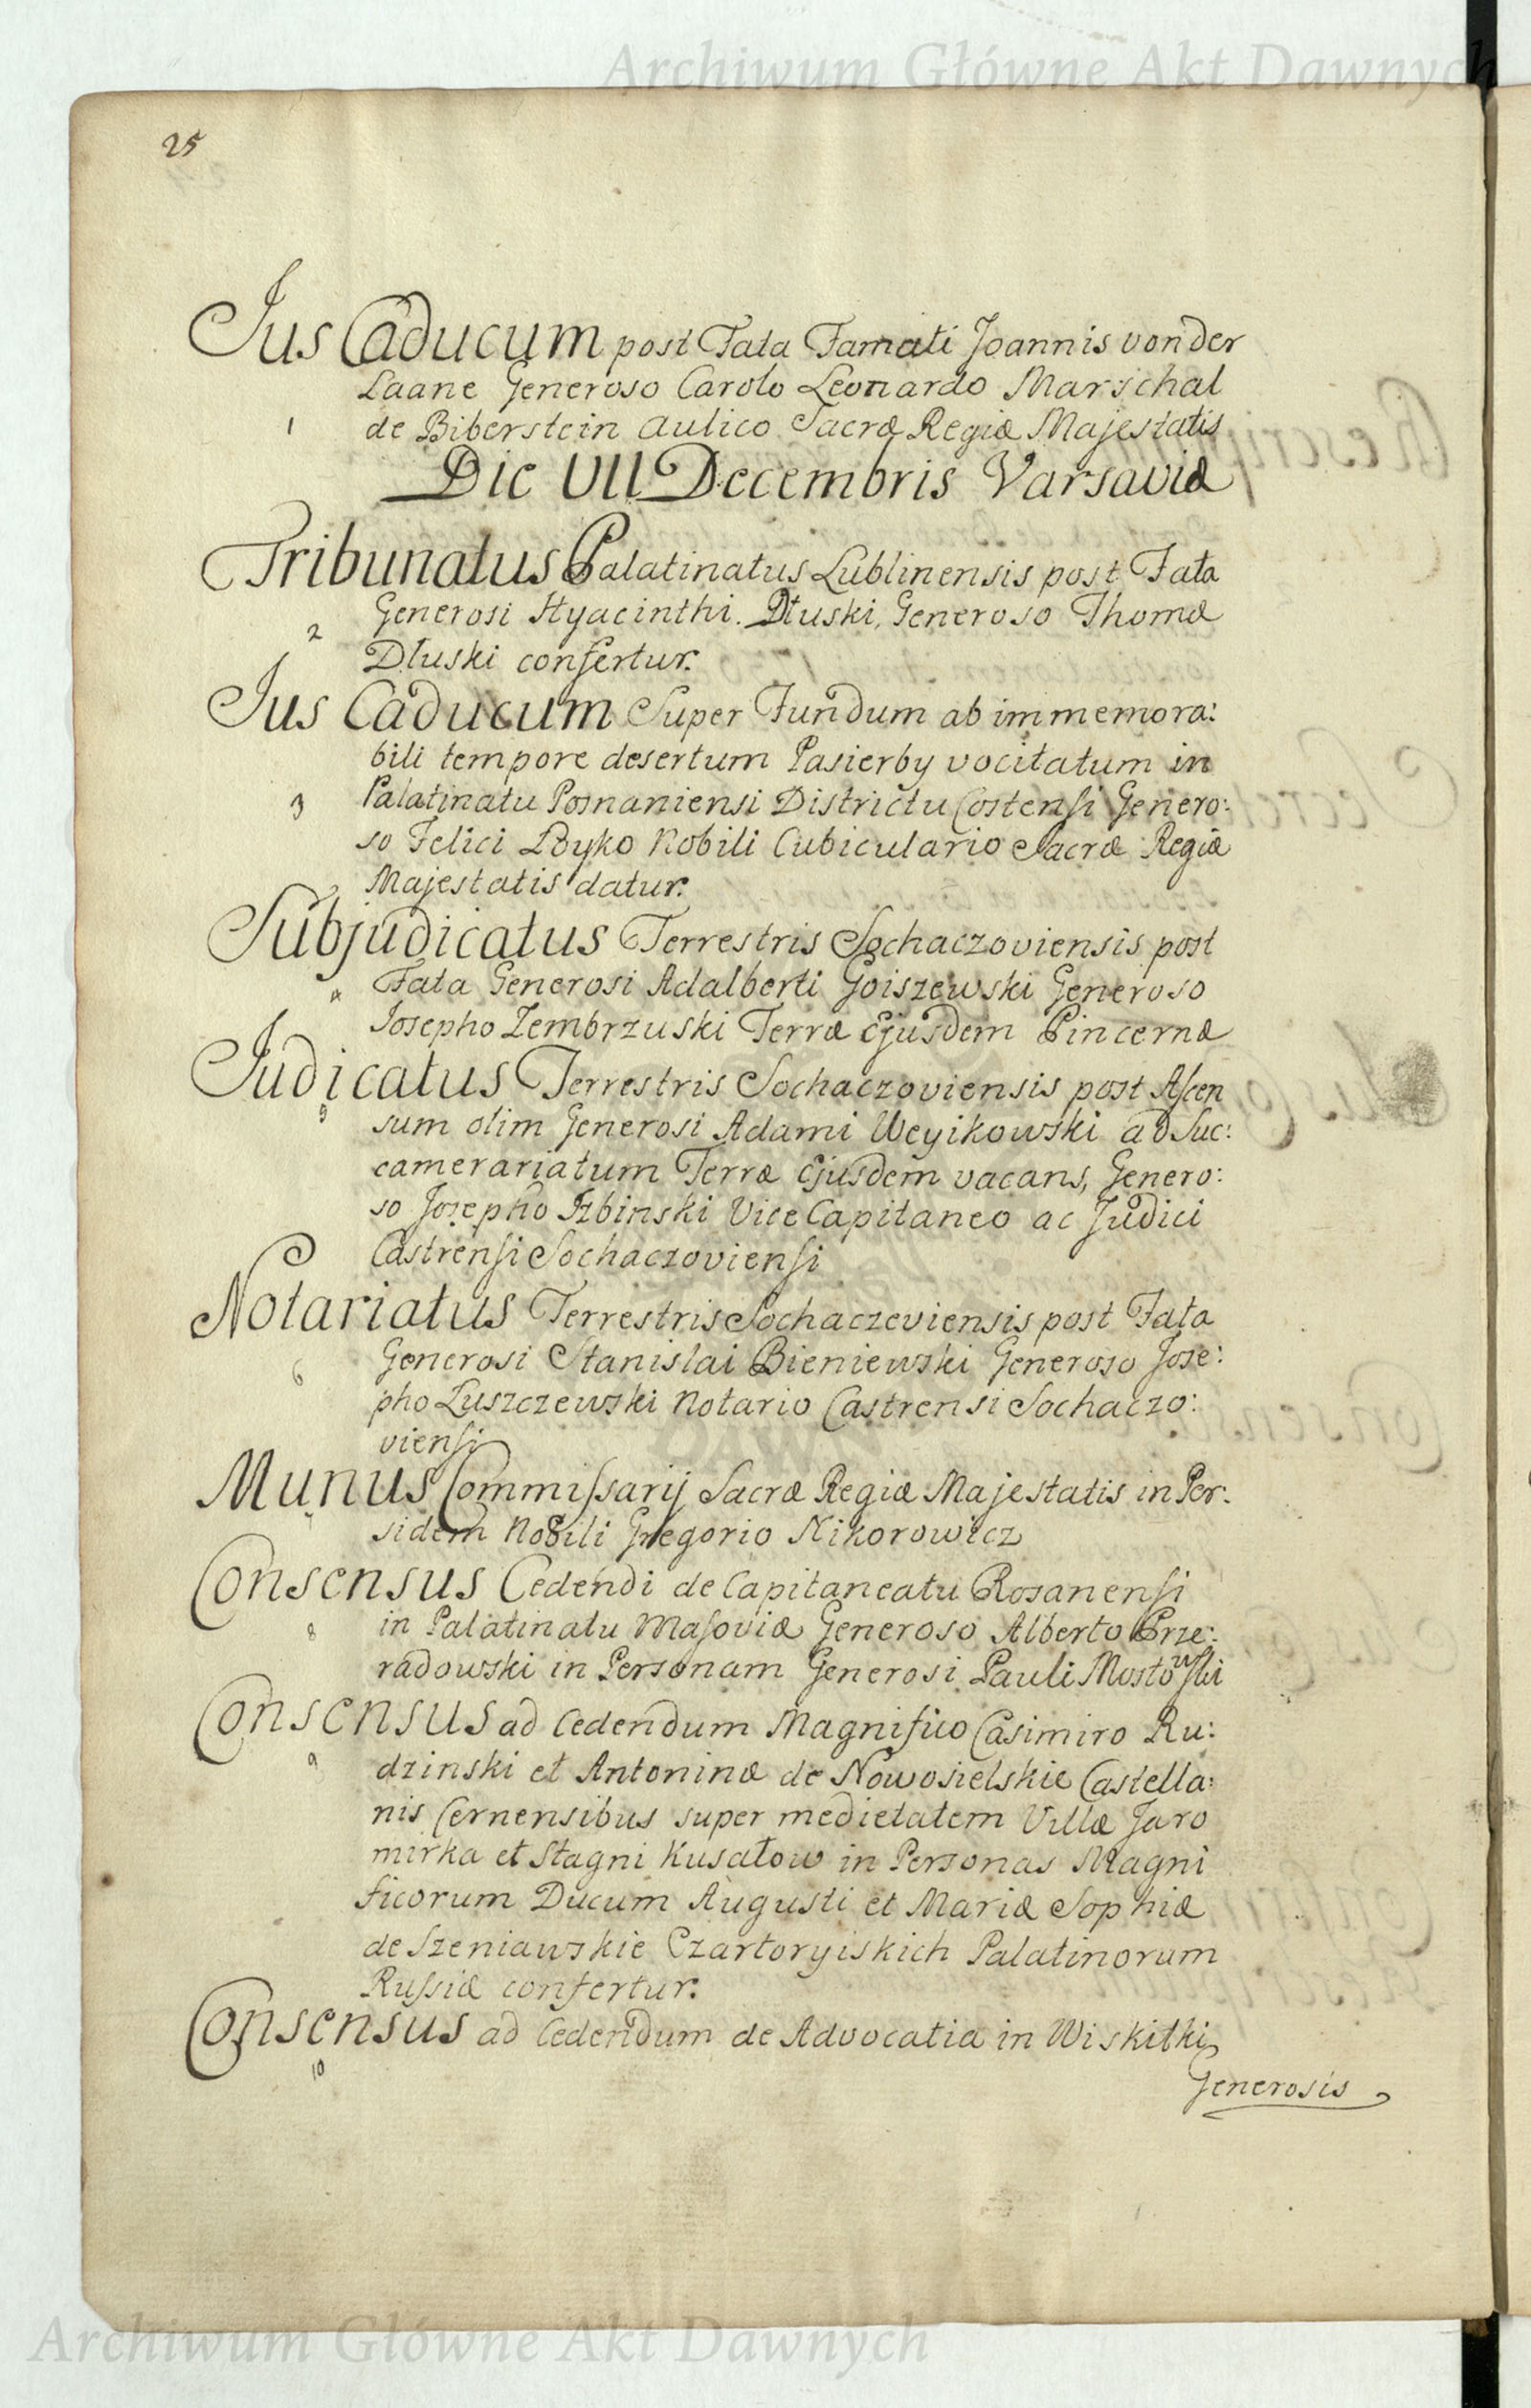 Archiwum Główne Akt Dawnych
25
Jus Caducum post Fata Famati Joannis von der
Laane Generoso Carolo Leonardo Marschal
1 de Biberstein Aulico Sacræ Regiæ Majestatis
Die VII Decembris Varsaviæ
Tribunatus Palatinatus Lublinensis post Fata
Generosi Hyacinthi Dłuski, Generoso Thomæ
2
Dłuski confertur.
Jus Caducum Super Fundum ab immemora:
bili tempore desertum Pasierby vocitatum in
3 Palatinatu Posnaniensi Districtu Costensi Genero:
so Felici Łoyko Nobili Cubiculario Sacræ Regiæ
Majestatis datur.
Subjudicatus Terrestris Sochaczoviensis post
4 Fata Generosi Adalberti Goiszewski Generoso
Josepho Zembrzuski Terræ Ejusdem Pincernæ
Judicatus Terrestris Sochaczoviensis post Ascen
5 sum olim Generosi Adami Weyikowski ad Suc:
camerariatum Terræ Ejusdem vacans, Genero:
so Josepho Izbinski Vice Capitaneo ac Judici
Castrensi Sochaczoviensi
Notariatus Terrestris Sochaczeviensis post Fata
6 Generosi Stanislai Bieniewski Generoso Jose:
pho Łuszczewski Notario Castrensi Sochaczo:
viensi
Munus Commissarij Sacræ Regiæ Majestatis in Per:
sidem Nobili Gregorio Nikorowicz
Consensus Cedendi de Capitaneatu Rosanensi
8 in Palatinatu Masoviæ Generoso Alberto Prze:
radowski in Personam Generosi Pauli Mostowski
Consensus ad Cedendum Magnifico Casimiro Ru:
9 dzinski et Antoninæ de Nowosielskie Castella:
nis Cernensibus super medietatem Villæ Jaro
mirka et Stagni Kusatow in Personas Magni
ficorum Ducum Augusti et Mariæ Sophiæ
de Szeniawskie Czartoryiskich Palatinorum
Russiæ confertur.
Consensus ad Cedendum de Advocatia in Wiskitki
10
Generosis
Archiwum Główne Akt Dawnych